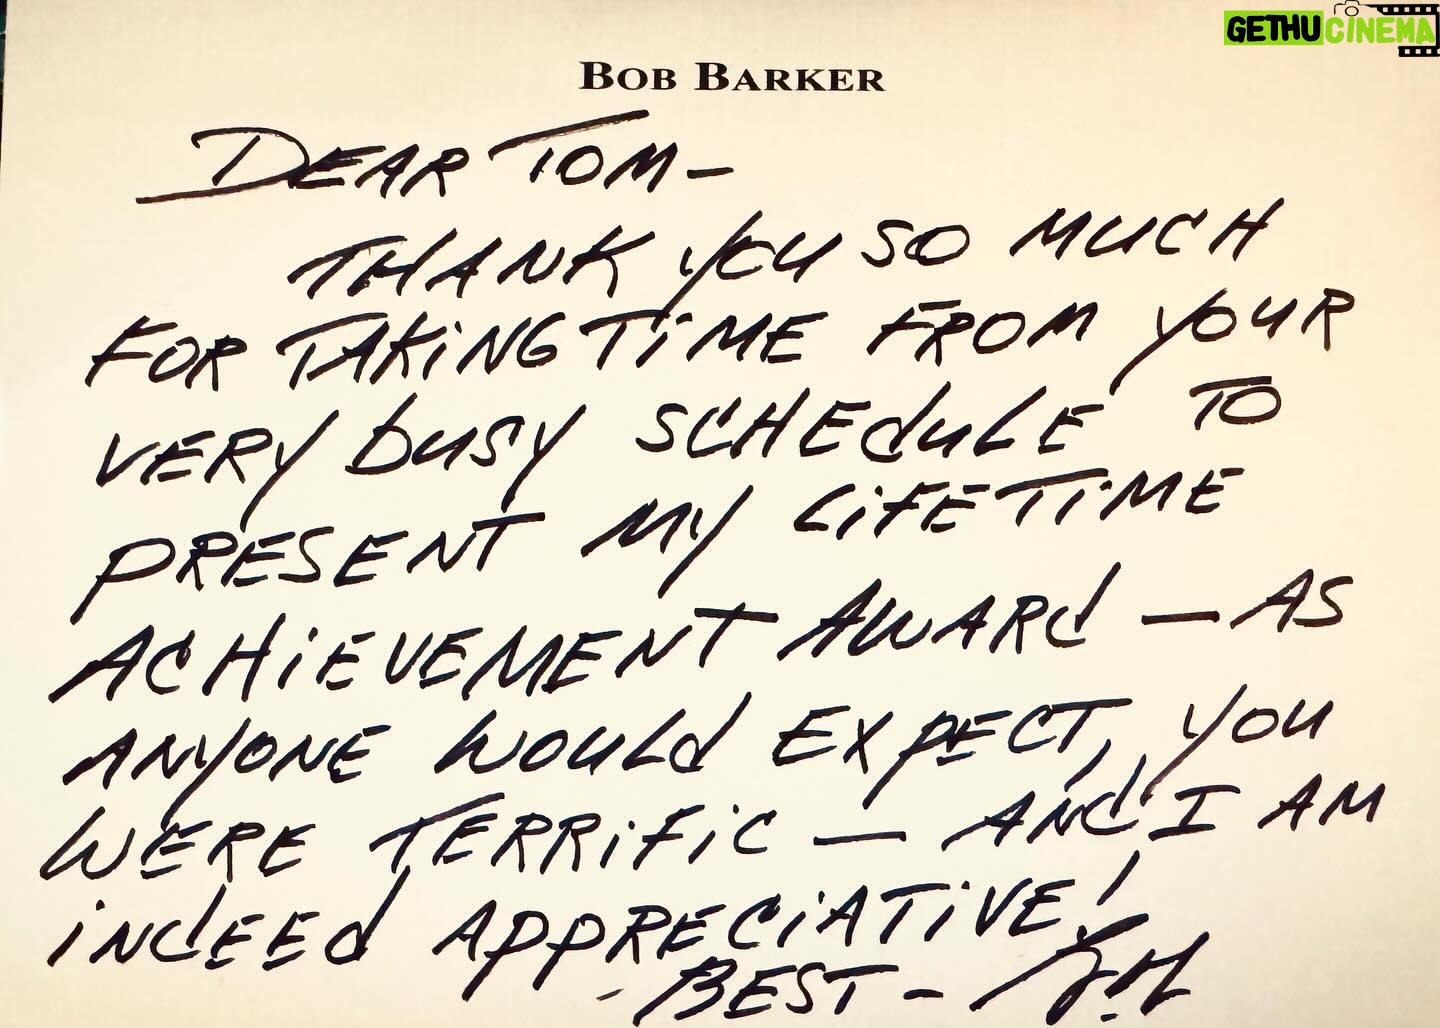 GETHUCINEMA
BOB BARKER
DEAR TOM-
THANK YOU SO MUCH
FOR TAKING TIME FROM YOUR
VERY BUSY SCHEDULE TO
PRESENT MY LIFETIME
ACHIEVEMENT AWARD - AS
ANYONE WOULD EXPECT, YOU
WERE TERRIFIC - AND I AM
INDEED APPRECIATIVE!
BEST - Bob